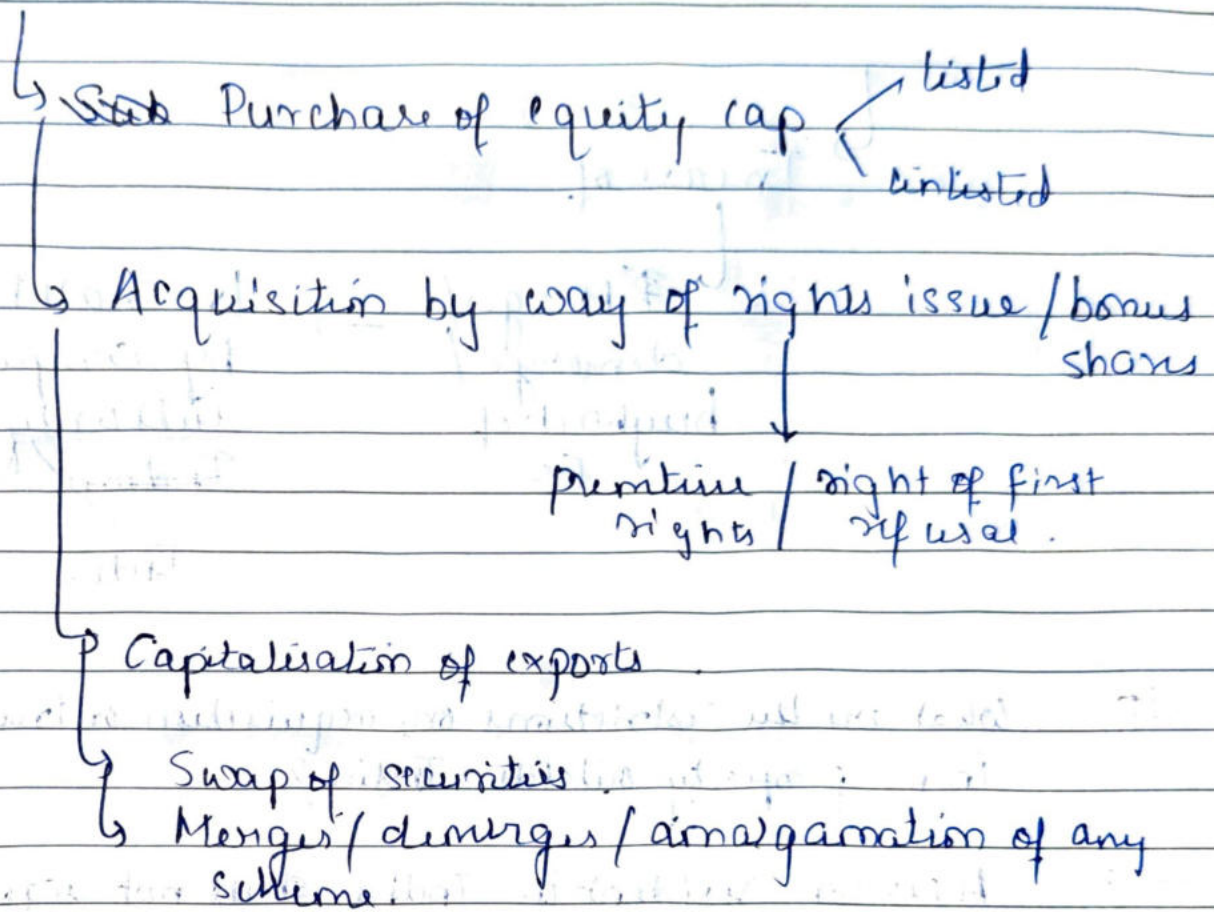 Purchase of equity cap
listed
unlisted
Acquisition by way of rights issue / bonus
shares
premtive / right of first
rights / refusal.
Capitalisation of exports.
Swap of securities.
Merges / demerges / amalgamation of any
scheme.